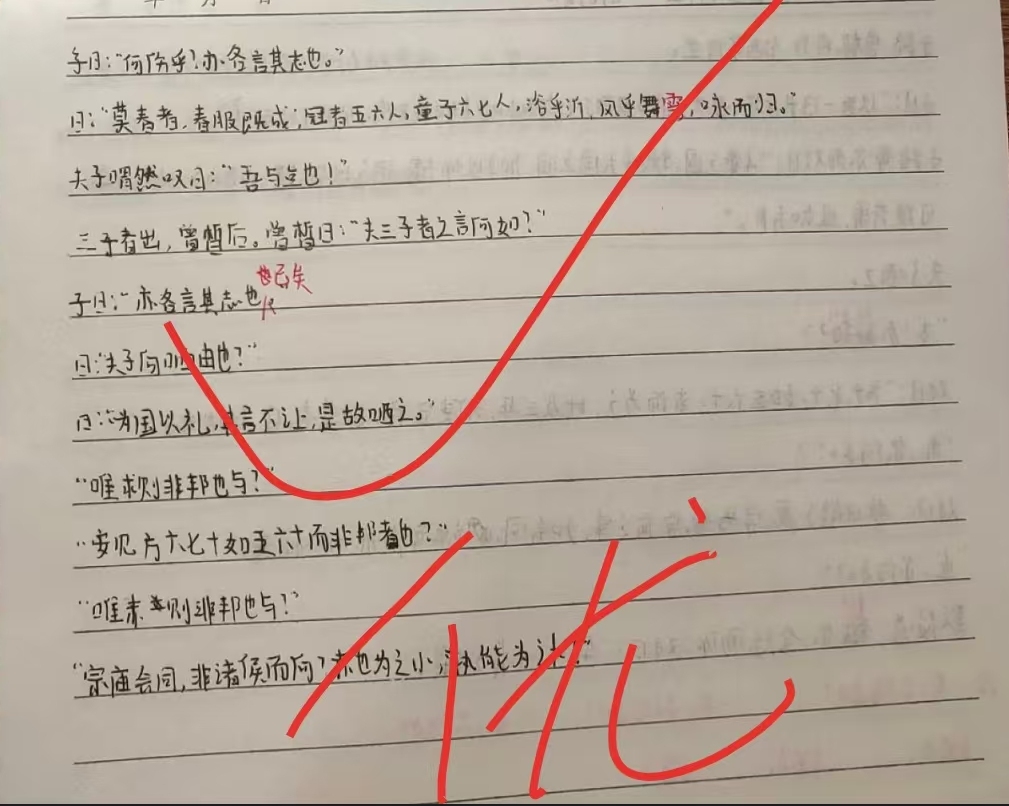 子曰：“何伤乎？亦各言其志也。”
曰：“莫春者，春服既成，冠者五六人，童子六七人，浴乎沂，风乎舞雩，咏而归。”
夫子喟然叹曰：“吾与点也！”
三子者出，曾晳后。曾晳曰：“夫三子者之言何如？”
也已矣
子曰：“亦各言其志也
曰：“夫子何哂由也？”
曰：“为国以礼，其言不让，是故哂之。”
“唯求则非邦也与？”
“安见方六七十如五六十而非邦者也？”
“唯赤则非邦也与？”
“宗庙会同，非诸侯而何？赤也为之小，孰能为之大？”
优